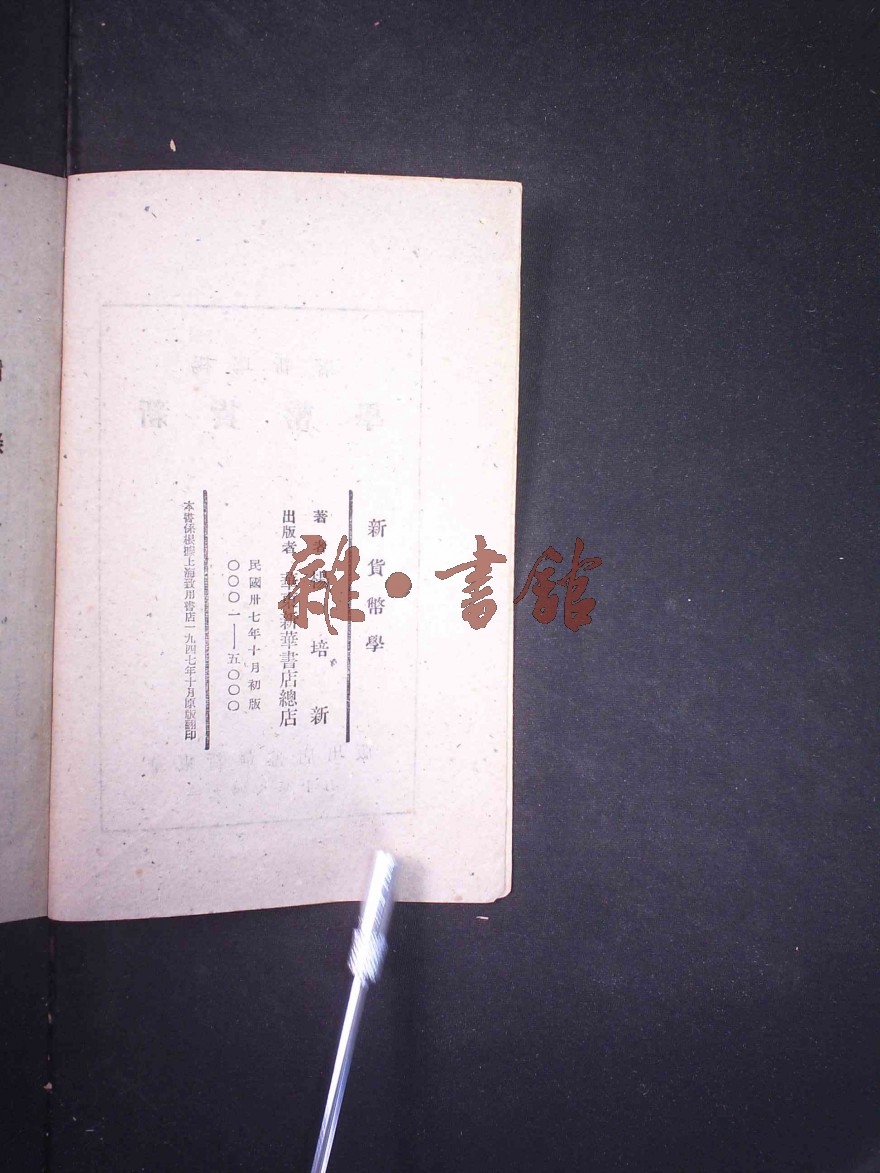 新貨幣學
著者 楊培新
出版者 華東新華書店總店
民國卅七年十月初版
〇〇〇一——五〇〇〇
本書係根據上海致用書店一九四七年十月原版翻印
雜·書館